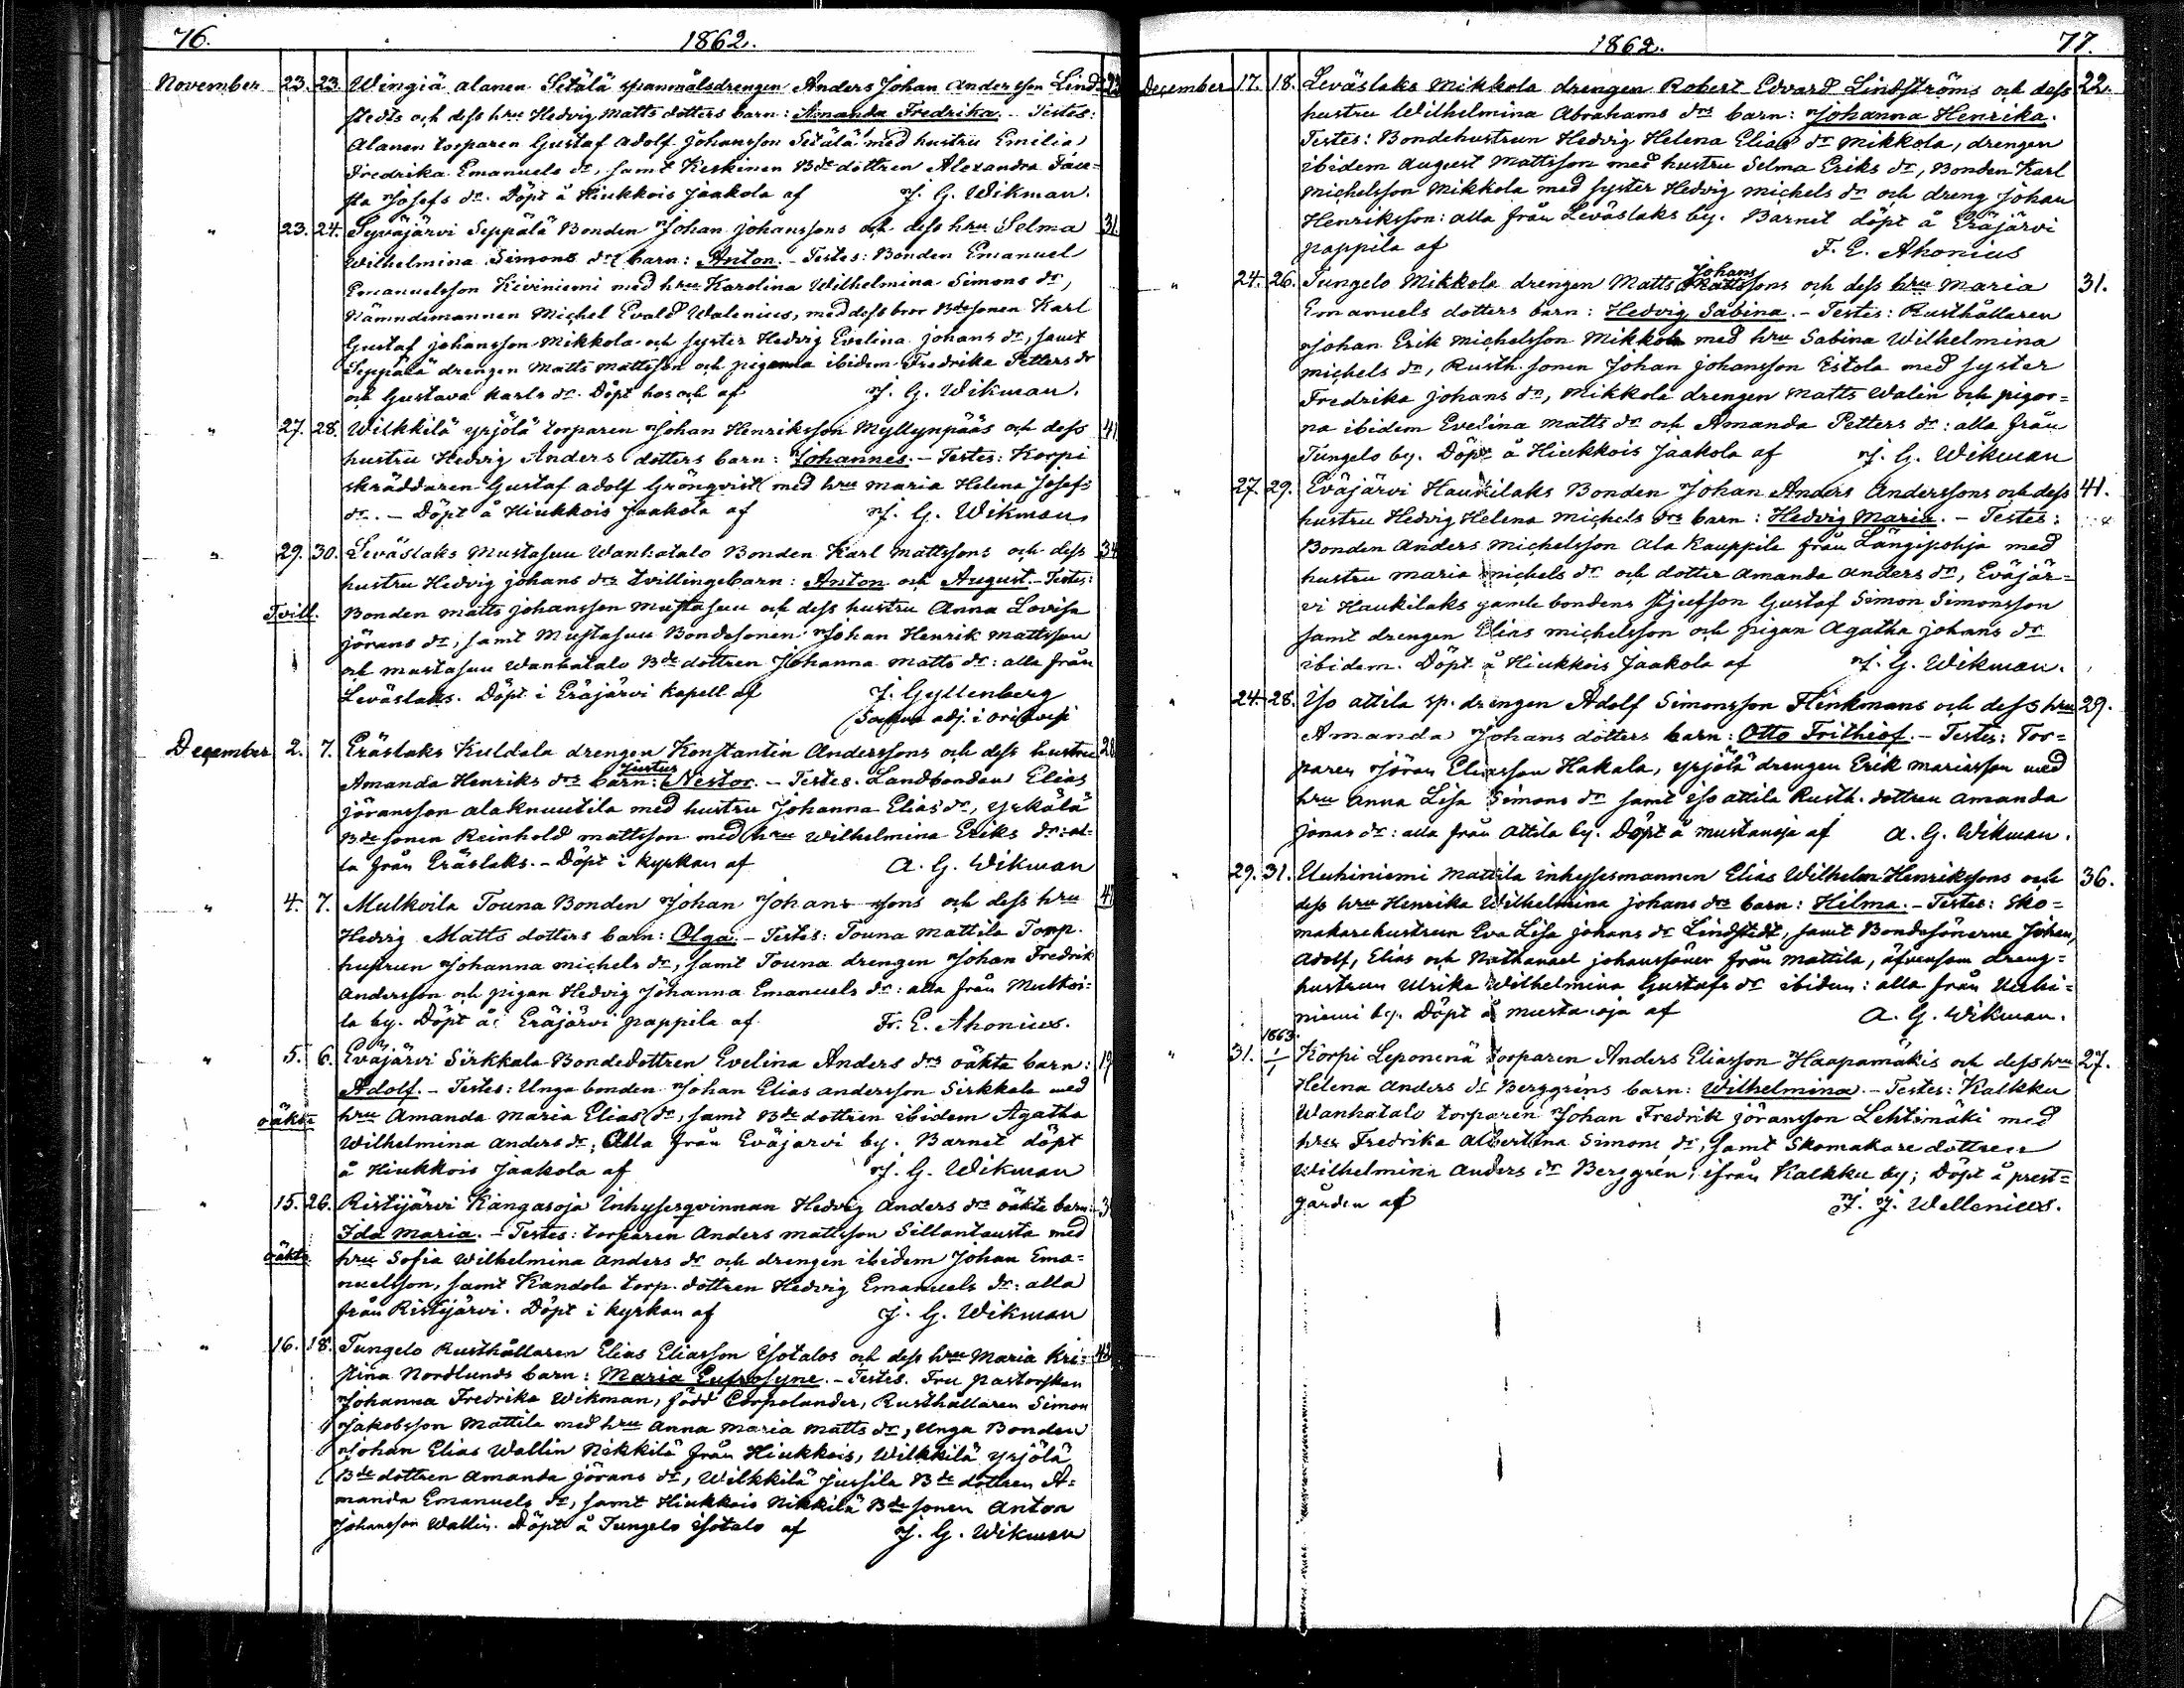 76.
1862.
November 23. 23. Wingiä alanen Setälä spannmålsdrengen Anders Johan Andersson Lind-
stedts och dess hru Hedvig Matts dotters barn: Amanda Fredrika. - Testes:
Alanen torparen Gustaf Adolf Johansson Setälä med hustru Emilia
Fredrika Emanuels dr, samt Keskinen Bde dottren Alexandra Fau-
sta Josefs dr. Döpt å Hiukkois Jaakola af J. G. Wikman.
" 23. 24. Syväjärvi Seppälä Bonden Johan Johanssons och dess hru Selma 31
Wilhelmina Simons drs barn: Anton. - Testes: Bonden Emanuel
Emanuelsson Kiviniemi med hru Karolina Wilhelmina Simons dr,
Nämndemannen Michel Evald Walenius, med dess bror Bdesonen Karl
Gustaf Johansson Mikkola och syster Hedvig Evelina Johans dr, samt
Seppälä drengen Matts Mattsson och pigorna ibidem Fredrika Petters dr
och Gustava Karls dr. Döpt hos och af J. G. Wikman.
" 27. 28. Wilkkilä Yrjölä torparen Johan Henriksson Myllynpääs och dess 41
hustru Hedvig Anders dotters barn: Johannes. - Testes: Korpi
skräddaren Gustaf Adolf Grönqvist med hru Maria Helena Josefs
dr. - Döpt å Hiukkois Jaakola af J. G. Wikman
" 29. 30. Leväslaks Mustasuu Wanhatalo Bonden Karl Mattssons och dess 34
hustru Hedvig Johans drs tvillingebarn: Anton och August. - Testes:
Tvill. Bonden Matts Johansson Mustasuu och dess hustru Anna Lovisa
Jörans dr, samt Mustasuu Bondesonen Johan Henrik Mattsson
och Mustasuu Wanhatalo Bde dottren Johanna Matts dr: alla från
Leväslaks. Döpt i Eräjärvi kapell af J. Gyllenberg
adj. i Orivesi
December 2. 7. Eräslaks Kuldala drengen Konstantin Anderssons och dess hustru 28
Justus
Amanda Henriks drs barn: Nestor. - Testes. Landbonden Elias
Jöransson Alaknuutila med hustru Johanna Elias dr, Yrkälä
Bde sonen Reinhold Mattsson med hru Wilhelmina Eriks dr: al-
la från Eräslaks. - Döpt i kyrkan af A. G. Wikman
" 4. 7. Mulkoila Touna Bonden Johan Johanssons och dess hru 41
Hedvig Matts dotters barn: Olga. - Testes: Touna Mattila Torp.
hustrun Johanna Michels dr, samt Touna drengen Johan Fredrik
Andersson och pigan Hedvig Johanna Emanuels dr: alla från Mulkoi-
la by. Döpt å Eräjärvi pappila af Fr. E. Ahonius.
" 5. 6. Eväjärvi Sirkkala Bondedottren Evelina Anders drs oäkta barn: 19
Adolf. - Testes: Unga bonden Johan Elias Andersson Sirkkala med
oäkta hru Amanda Maria Elias dr, samt Bde dottren ibidem Agatha
Wilhelmina Anders dr: Alla från Eväjärvi by. Barnet döpt
å Hiukkois Jaakola af J. G. Wikman
" 15. 26. Ristijärvi Kangasoja Inhysesqvinnan Hedvig Anders drs oäkta barn: 3
Ida Maria. - Testes: torparen Anders Mattsson Sillantausta med
oäkta hru Sofia Wilhelmina Anders dr och drengen ibidem Johan Ema-
nuelsson, samt Kandola torp. dottren Hedvig Emanuels dr: alla
från Ristijärvi. Döpt i kyrkan af J. G. Wikman
" 16. 18. Tungelo Rusthållaren Elias Eliasson Isotalos och dess hru Maria Kri- 42
stina Nordlunds barn: Maria Eufrosyne. - Testes. Fru pastorskan
Johanna Fredrika Wikman, född Corpolander, Rusthållaren Simon
Jakobsson Mattila med hru Anna Maria Matts dr, Unga Bonden
Johan Elias Wallin Nikkilä från Hiukkois, Wilkkilä Yrjölä
Bde dottren Amanda Jörans dr, Wilkkilä Jussila Bde dottren A-
manda Emanuels dr, samt Hiukkois Nikkilä Bde sonen Anton
Johansson Wallin. Döpt å Tungelo Isotalo af J. G. Wikman
1862.
77.
December 17. 18. Leväslaks Mikkola drengen Robert Edvard Lindströms och dess 22.
hustru Wilhelmina Abrahams drs barn: Johanna Henrika.
Testes: Bondehustrun Hedvig Helena Elias dr Mikkola, drengen
ibidem August Mattsson med hustru Selma Eriks dr, Bonden Karl
Michelsson Mikkola med syster Hedvig Michels dr och dreng Johan
Henriksson: alla från Leväslaks by. Barnet döpt å Eräjärvi
pappila af F. E. Ahonius
Johans
" 24. 26. Tungelo Mikkola drengen Matts Mattssons och dess hru Maria 31.
Emanuels dotters barn: Hedvig Sabina. - Testes: Rusthållaren
Johan Erik Michelsson Mikkola med hru Sabina Wilhelmina
Michels dr, Rusth. sonen Johan Johansson Eistola med syster
Fredrika Johans dr, Mikkola drengen Matts Walin och pigor-
na ibidem Evelina Matts dr och Amanda Petters dr: alla från
Tungelo by. Döpt å Hiukkois Jaakola af J. G. Wikman
" 27. 29. Eväjärvi Haukilaks Bonden Johan Anders Anderssons och dess 41.
hustru Hedvig Helena Michels drs barn: Hedvig Maria. - Testes:
Bonden Anders Michelsson Ala Kauppila från Längipohja med
hustru Maria Michels dr och dotter Amanda Anders dr, Eväjär-
vi Haukilaks gamle bondens stjufson Gustaf Simon Simonsson
samt drengen Elias Michelsson och pigan Agatha Johans dr
ibidem. Döpt å Hiukkois Jaakola af J. G. Wikman.
" 24. 28. Iso Attila sp. drengen Adolf Simonsson Flinkmans och dess hru 29.
Amanda Johans dotters barn: Otto Frithiof. - Testes: Tor-
paren Jöran Eliasson Hakala, Yrjölä drengen Erik Mariasson med
hru Anna Lisa Simons dr samt Iso Attila Rusth. dottren Amanda
Jonas dr: alla från Attila by. Döpt å Mustanoja af A. G. Wikman.
" 29. 31. Uuhiniemi Mattila inhysesmannen Elias Wilhelm Henrikssons och 36.
dess hru Henrika Wilhelmina Johans drs barn: Hilma. - Testes: Sko-
makarehustrun Eva Lisa Johans dr Lindstedt, samt Bondesönerne Johan,
Adolf, Elias och Nathanael Johanssöner från Mattila, äfvensom dreng-
hustrun Ulrika Wilhelmina Gustafs dr ibidem: alla från Uuhi-
niemi by. Döpt å Mustanoja af A. G. Wikman.
1863.
" 31. 1/1 Korpi Leponenä torparen Anders Eliasson Haapamäkis och dess hru 27.
Helena Anders dr Berggréns barn: Wilhelmina. - Testes: Kalkku
Wanhatalo torparen Johan Fredrik Jöransson Lehtimäki med
hru Fredrika Albertina Simons dr, samt Skomakare dottren
Wilhelmina Anders dr Berggrén; ifrån Kalkku by; Döpt å prest-
gården af F. J. Wellenius.